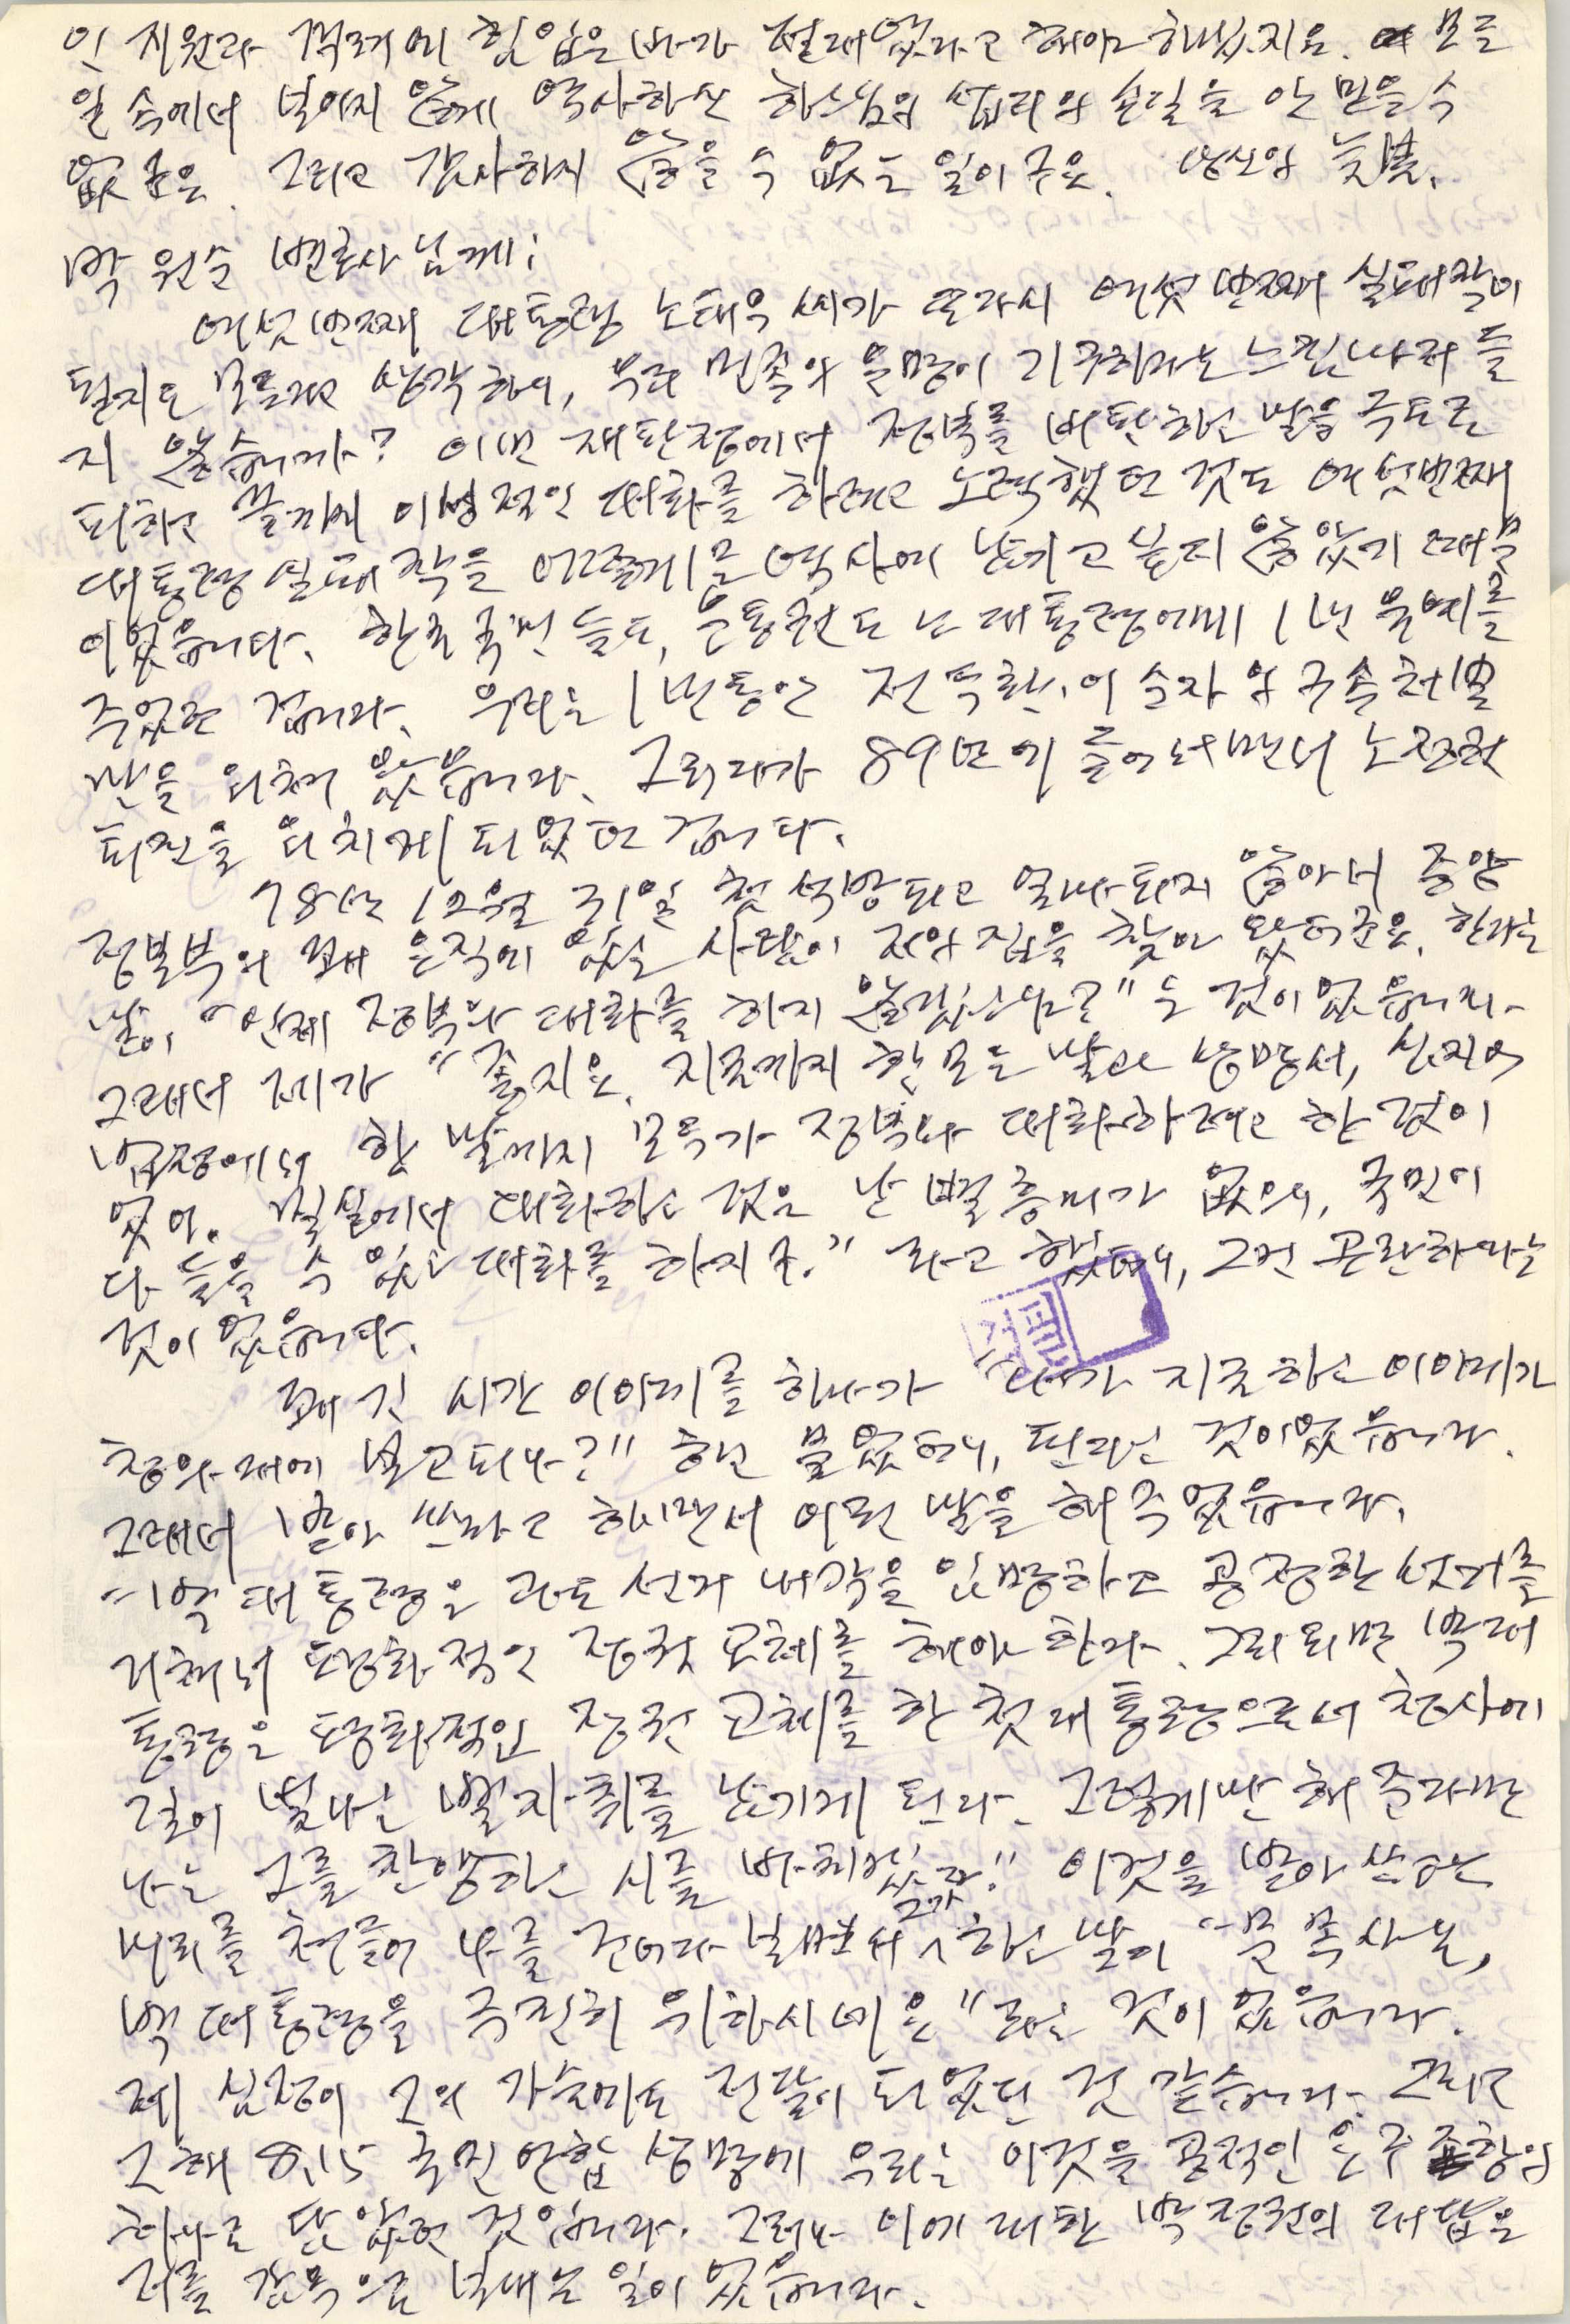 인 지원과 격려에 힘입은 바가 절대였다고 해야 하겠지요. 모든
일 속에서 보이지 않게 역사하신 하느님의 섭리의 손길을 안 믿을 수
없군요. 그리고 감사하지 않을 수 없는 일이구요. 당신의 늦봄.
박 원순 변호사님께;
여섯번째 대통령 노태우 씨가 또다시 여섯번째 실패작이
될지도 모른다고 생각하니, 우리 민족의 운명이 기구하다는 느낌 나지 들
지 않습니까? 이번 재판정에서 정부를 비판하는 말을 극도로
피하고 끝까지 이성적인 대화를 하려고 노력했던 것도 여섯번째
대통령 실패작을 어떻게든 역사에 남기고 싶지 않았기 때문
이었습니다. 한국 국민들도, 운동권도 노대통령에게 1년 유예를
주었던 겁니다. 우리는 1년동안 전두환, 이순자의 구속 처벌
만을 외쳐 왔습니다. 그러다가 89년에 들어서면서 노정권
퇴진을 외치게 되었던 겁니다.
78년 12월 31일 첫 석방되고 얼마 되지 않아서 중앙
정보부의 꽤 요직에 있는 사람이 저의 집을 찾아 왔더군요. 한다는
말이, "인제 정부와 대화를 하지 않겠습니까?"는 것이었습니다.
그래서 제가 "좋지요. 지금까지 한 모든 말과 성명서, 심지어
법정에서 한 말까지 모두가 정부와 대화하려고 한 것이
었어. 밀실에서 대화하는 것은 난 별 흥미가 없으니, 국민이
다 들을 수 있는 대화를 하지구." 라고 했더니, 그건 곤란하다는
것이었습니다.
꽤 긴 시간 이야기를 하다가 "내가 지금 하는 이야기가
청와대에 보고되나?" 하고 물었더니, 된다는 것이었습니다.
그래서 받아 쓰라고 하면서 이런 말을 해 주었습니다.
"박 대통령은 과도 선거 내각을 임명하고 공정한 선거를
거쳐서 평화적인 정권 교체를 해야 한다. 그러면 박대
통령은 평화적인 정권 교체를 한 첫 대통령으로서 청사에
길이 빛나는 발자취를 남기게 된다. 그렇게만 해 준다면
나는 그를 찬양하는 시를 바치겠다." 이것을 받아 쓰고는
머리를 쳐들어 나를 건너다 보면서 그가 하는 말이 "문 목사님,
박 대통령을 극진히 위하시네요" 라는 것이었습니다.
제 심정이 그의 가슴에도 전달이 되었던 것 같습니다. 그리고
그 해 8.15 국민연합 성명에 우리는 이것을 공적인 요구 조항의
하나로 담았던 것입니다. 그러나 이에 대한 박 정권의 대답은
저를 감옥으로 보내는 일이었습니다.